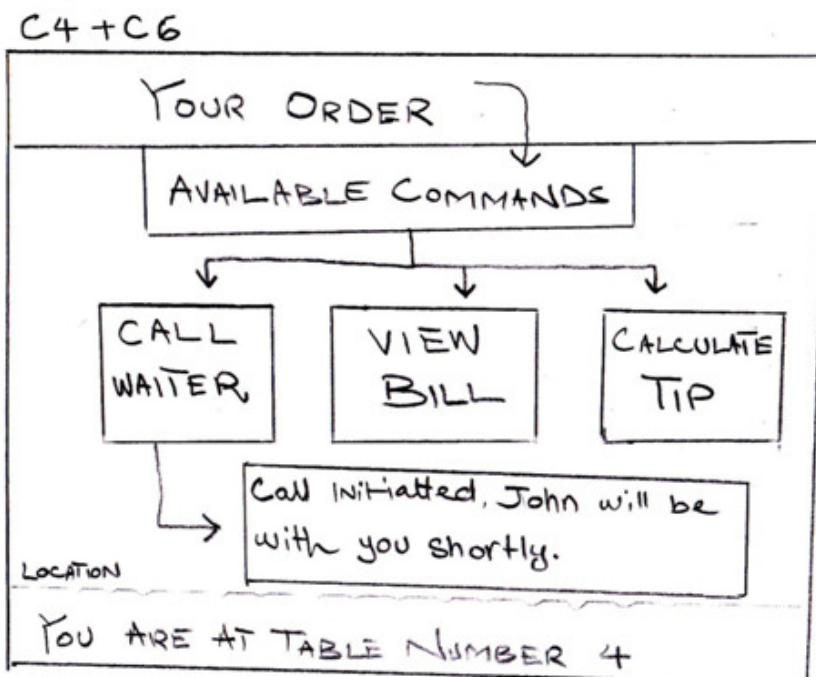 C4 + C6
YOUR ORDER
AVAILABLE COMMANDS
CALL
WAITER
VIEW
BILL
CALCULATE
TIP
Call initiatted, John will be
with you shortly.
LOCATION
YOU ARE AT TABLE NUMBER 4